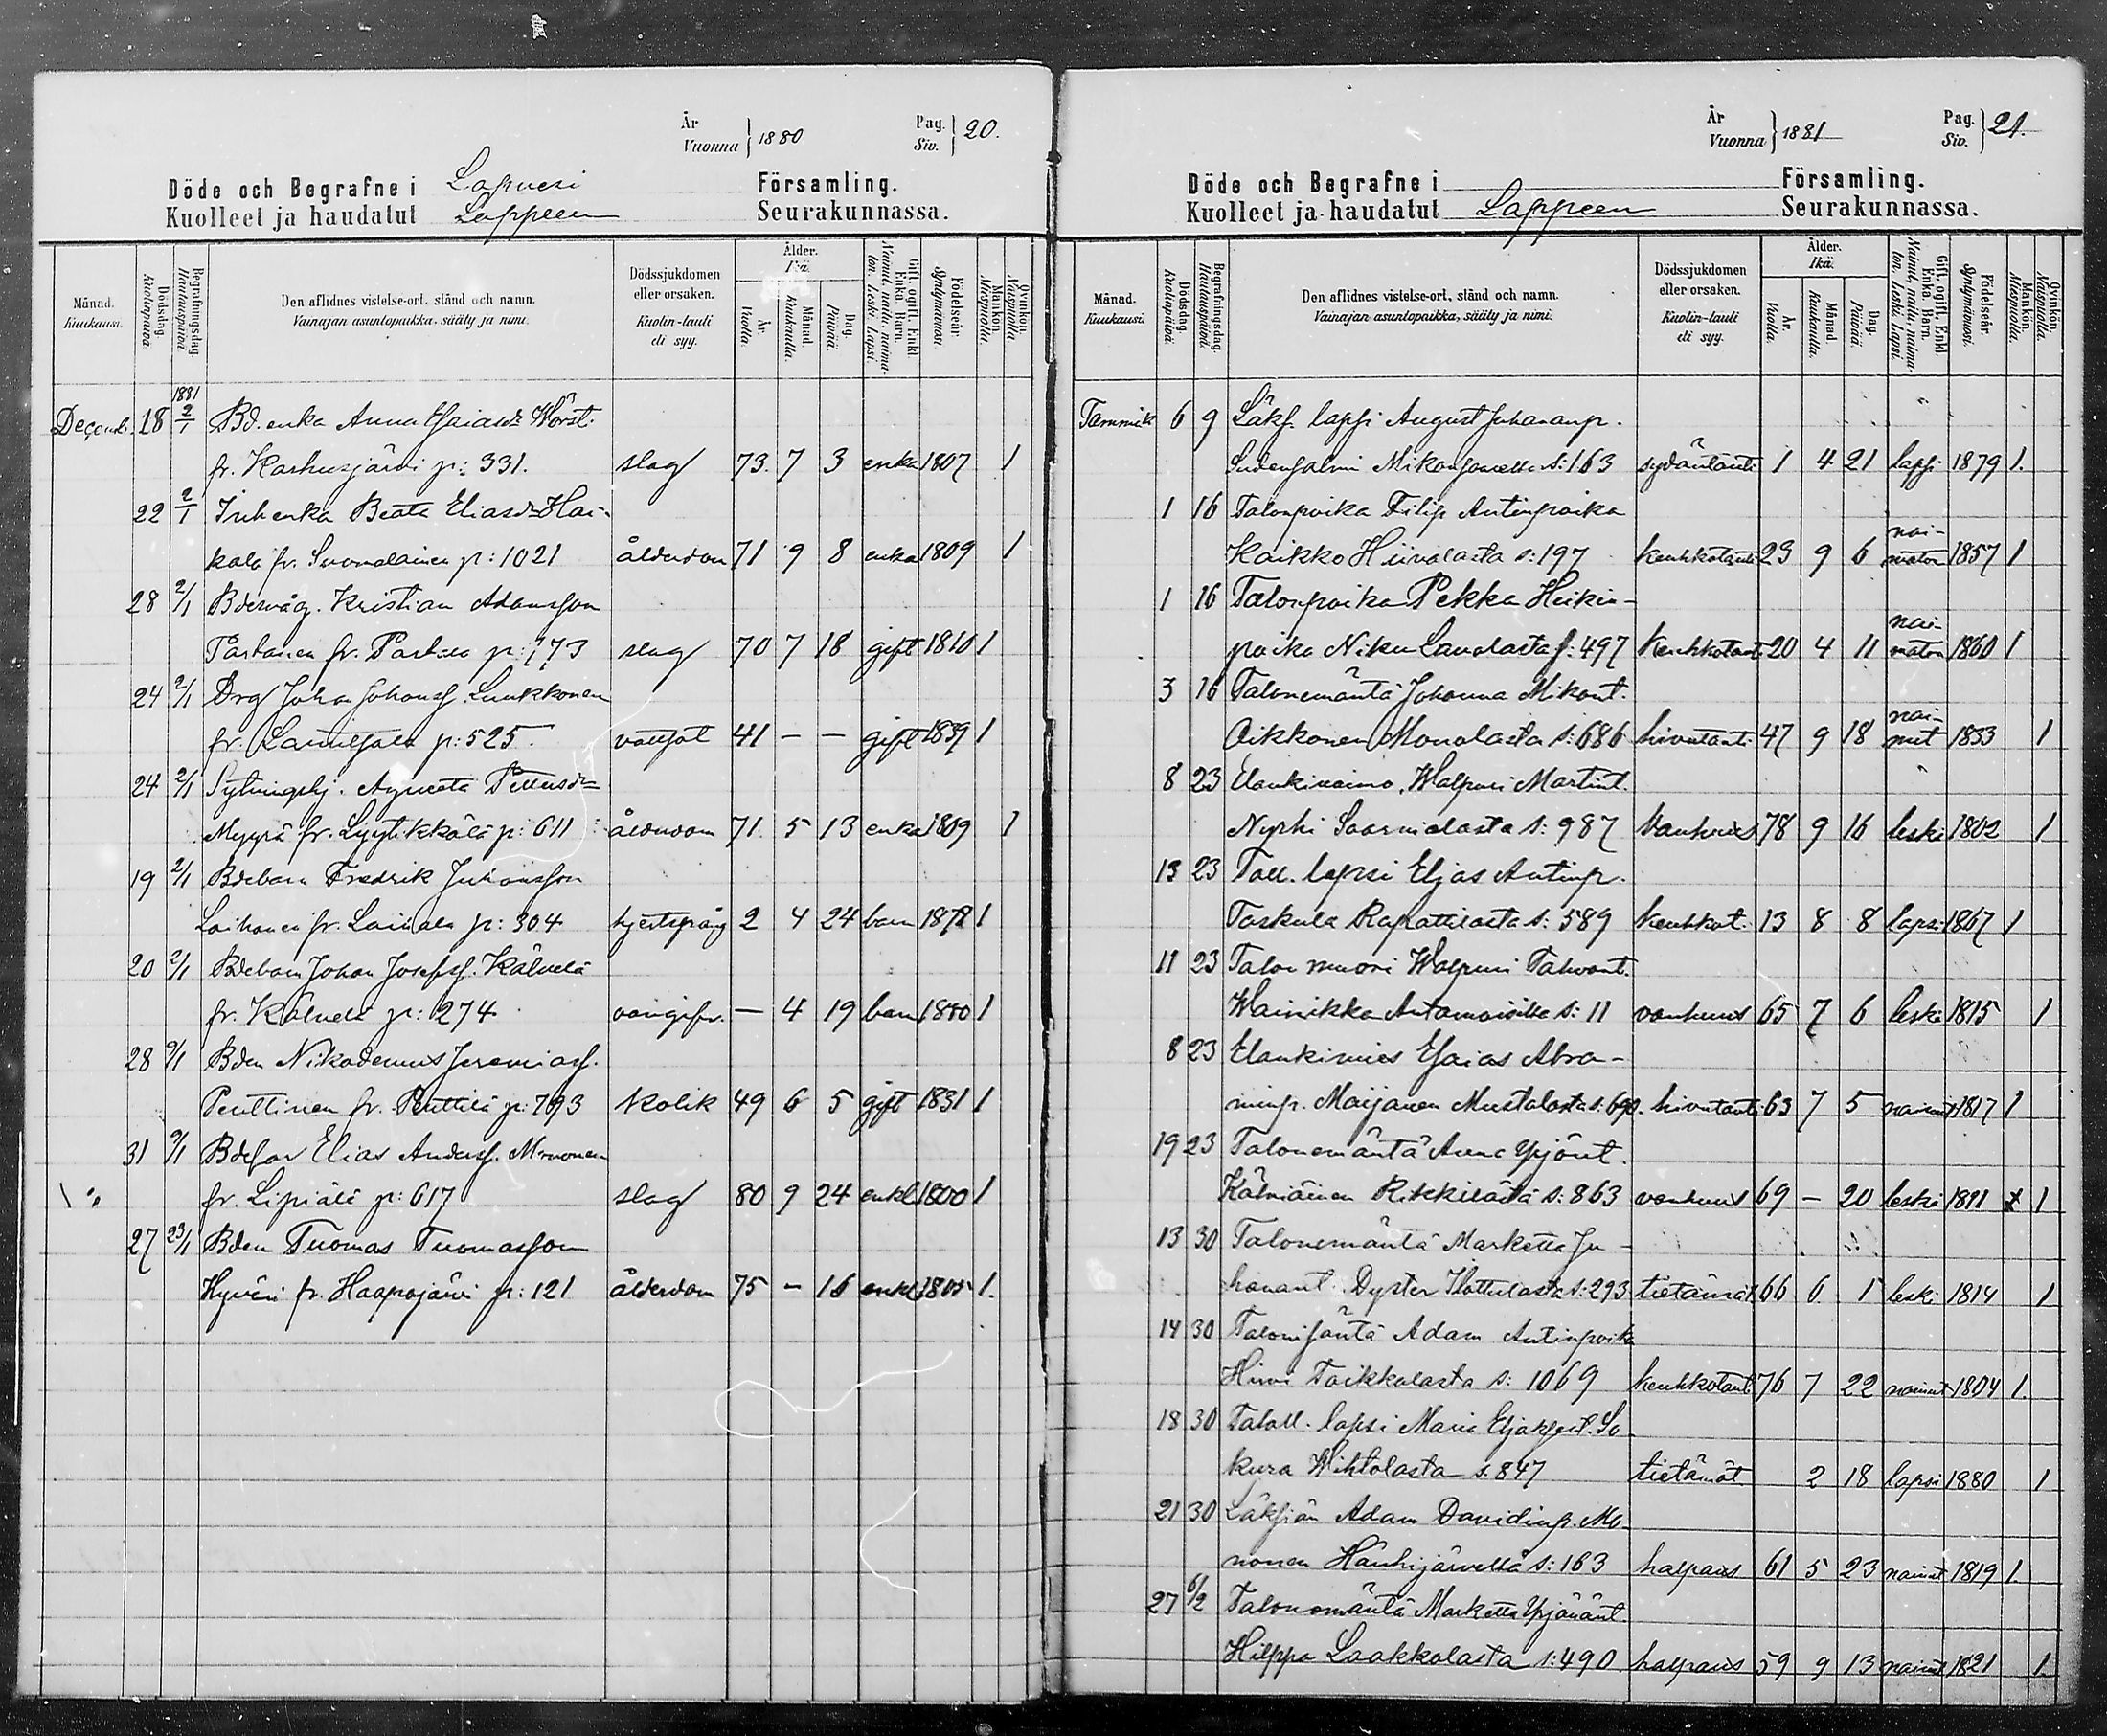 År
Vuonna 1880
Pag.
Siv. 20.
Döde och Begrafne i Lapvesi Församling.
Kuolleet ja haudatut Lappeen Seurakunnassa.
Månad.
Kuukausi.
Dödsdag.
Kuolinpäivä.
Begrafningsdag.
Hautauspäivä.
Den aflidnes vistelse-ort, stånd och namn.
Vainajan asuntopaikka, sääty ja nimi.
Dödssjukdomen
eller orsaken.
Kuolin-tauti
eli syy.
Ålder.
Ikä.
År.
Vuotta.
Månad.
Kuukautta.
Dag.
Päivää.
Gift, ogift, Enkl.
Enka, Barn.
Nainut, naitu, naima-
ton. Leski. Lapsi.
Födelseår.
Syntymävuosi.
Mankön.
Miespuolta.
Qvinkön.
Naispuolta.
1881
Decemb. 18 2/1 Bd. enka Anna Esaiasd:r Wörst.
fr. Karhusjärvi p: 331. slag 73 7 3 enka 1807 1
22 2/1 Inh enka Beata Eliasd:r Hai-
kala fr. Suomalainen p: 1021 ålderdom 71 9 8 enka 1809 1
28 2/1 Kristian Adamsson
Partanen fr. p: 773 slag 70 7 18 gift 1810 1
24 2/1 Drg Johan Johansf. Luukkonen
fr. p: 525. 41 - - gift 1839 1
24 2/1 Agneeta
Myyrä fr. Lyytikkälä p: 611 ålderdom 71 5 13 enka 1809 1
19 2/1 Bdebarn Fredrik Juhansson
Laihanen fr. p: 304 2 4 24 barn 1878 1
20 2/1 Bdebarn Johan Josefsf. Kälvelä
fr. Kälvelä p: 274 - 4 19 barn 1880 1
28 9/1 Bden Nikodemus Jeremiasf.
Penttinen fr. Penttilä p: 793 kolik 49 6 5 gift 1831 1
31 9/1 Bdefar Elias Andersf.
fr. p: 617 slag 80 9 24 enkl 1800 1
27 23/1 Bden Tuomas Tuomasson
Hyväri fr. Haapajärvi p: 121 ålderdom 75 - 16 enkl 1805 1.
År
Vuonna 1881
Pag.
Siv. 21.
Döde och Begrafne i Församling.
Kuolleet ja haudatut Lappeen Seurakunnassa.
Månad.
Kuukausi.
Dödsdag.
Kuolinpäivä.
Begrafningsdag.
Hautauspäivä.
Den aflidnes vistelse-ort, stånd och namn.
Vainajan asuntopaikka, sääty ja nimi.
Dödssjukdomen
eller orsaken.
Kuolin-tauti
eli syy.
Ålder.
Ikä.
År.
Vuotta.
Månad.
Kuukautta.
Dag.
Päivää.
Gift, ogift, Enkl.
Enka, Barn.
Nainut, naitu, naima-
ton. Leski. Lapsi.
Födelseår.
Syntymävuosi.
Mankön.
Miespuolta.
Qvinkön.
Naispuolta.
Tammik 6 9 Läks. lapsi August Juhananp.
s: 163 sydäntauti 1 4 21 lapsi 1879 1.
1 16 Talonpoika Filip Antinpoika
Kaikko Hiivalasta s: 197 keuhkotauti 23 9 6 nai-
maton 1857 1
1 16 Talonpoika Pekka Heikin-
poika Niku Laualasta s: 497 keuhkotaut 20 4 11 nai-
maton 1860 1
3 16 Talonemäntä Johanna Mikont.
Oikkonen Monolasta s: 686 hivutauti 47 9 18 nai-
nut 1833 1
8 23 Walpuri Martint.
Nyrhi Saarnialasta s: 987 Vanhuus 78 9 16 leski 1802 1
13 23 Tall. lapsi Eljas Antinp.
Taskula Rapattilasta s: 589 keuhkot. 13 8 8 lapsi 1867 1
11 23 Talon muori Walpuri Tahvont.
Wainikka s: 11 vanhuus 65 7 6 leski 1815 1
8 23 Elankimies Esaias Abra-
minp. Maijanen Mustalasta s: 690. hivutauti 63 7 5 nainut 1817 1
19 23 Talonemäntä Anna Yrjönt.
Kälviäinen Rikkilästä s: 863 vanhuus 69 - 20 leski 1811 1
13 30 Talonemäntä Marketta Ju-
hanant. Dyster Hottulasta s: 293 tietämät 66 6 1 leski 1814 1
14 30 Talonisäntä Adam Antinpoika
Hirvi Toikkalasta s: 1069 keuhkotaut 76 7 22 nainut 1804 1.
18 30 Taloll. lapsi Maria So-
kura Wihtolasta s. 847 tietämät 2 18 lapsi 1880 1
21 30 Adam Davidinp. Mo-
nonen Hanhijärveltä s: 163 halpaus 61 5 23 nainut 1819 1.
27 6/2 Talonemäntä Marketta Yrjänänt.
Hilppa Laakkolasta s: 490 halpaus 59 9 13 nainut 1821 1.